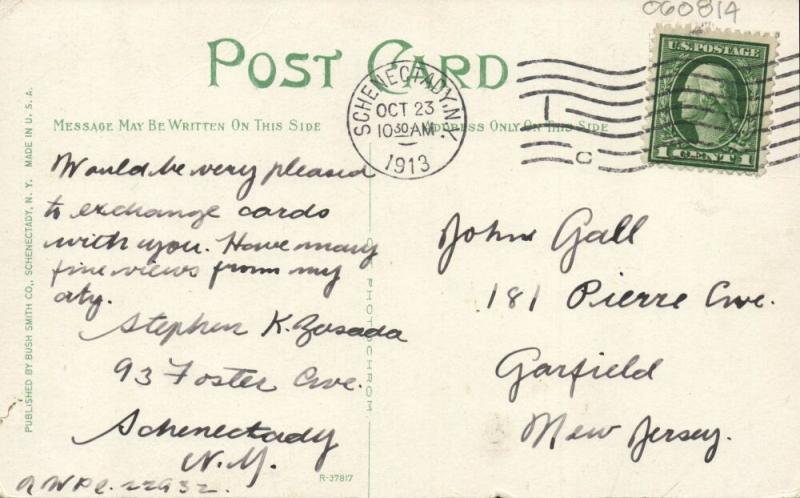 060814
POST CARD
U.S. POSTAGE
1 CENT 1
SCHENECTADY, N.Y.
OCT 23
10 30 AM
1913
C
MESSAGE MAY BE WRITTEN ON THIS SIDE
ADDRESS ONLY ON THIS SIDE
Would be very pleased
to exchange cards
with you. Have many
fine views from my
city.
Stephen K. Zasada
93 Foster Ave.
Schenectady
N.Y.
John Gall
181 Pierre Ave.
Garfield
New Jersey.
R-37817
PUBLISHED BY BUSH SMITH CO., SCHENECTADY, N. Y. MADE IN U. S. A.